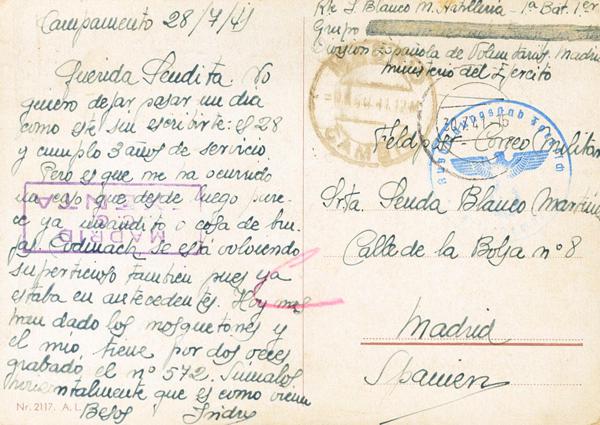 Campamento 28/7/41
Querida Sendita. No
quiero dejar pasar un día
como este sin escribirte: el 28
y cumplo 3 años de servicio
Pero es que me ha ocurrido
un caso que desde luego pare-
ce ya inaudito o cosa de bru-
jas. Codinach se está volviendo
supersticioso también pues ya
estaba en antecedentes. Hoy nos
han dado los mosquetones y
el mío tiene por dos veces
grabado el nº 572. Súmalos
horizontalmente que es como viene
Besos Isidro
Nr. 2117. A. L.
MADRID
Rte I. Blanco M. Artillería - 1ª Bat. 1er
Grupo
División Española de Voluntarios. Madrid
Ministerio del Ejército
Feldpost - Correo Militar
Srta. Senda Blanco Martínez
Calle de la Bolsa nº 8
Madrid
Spanien